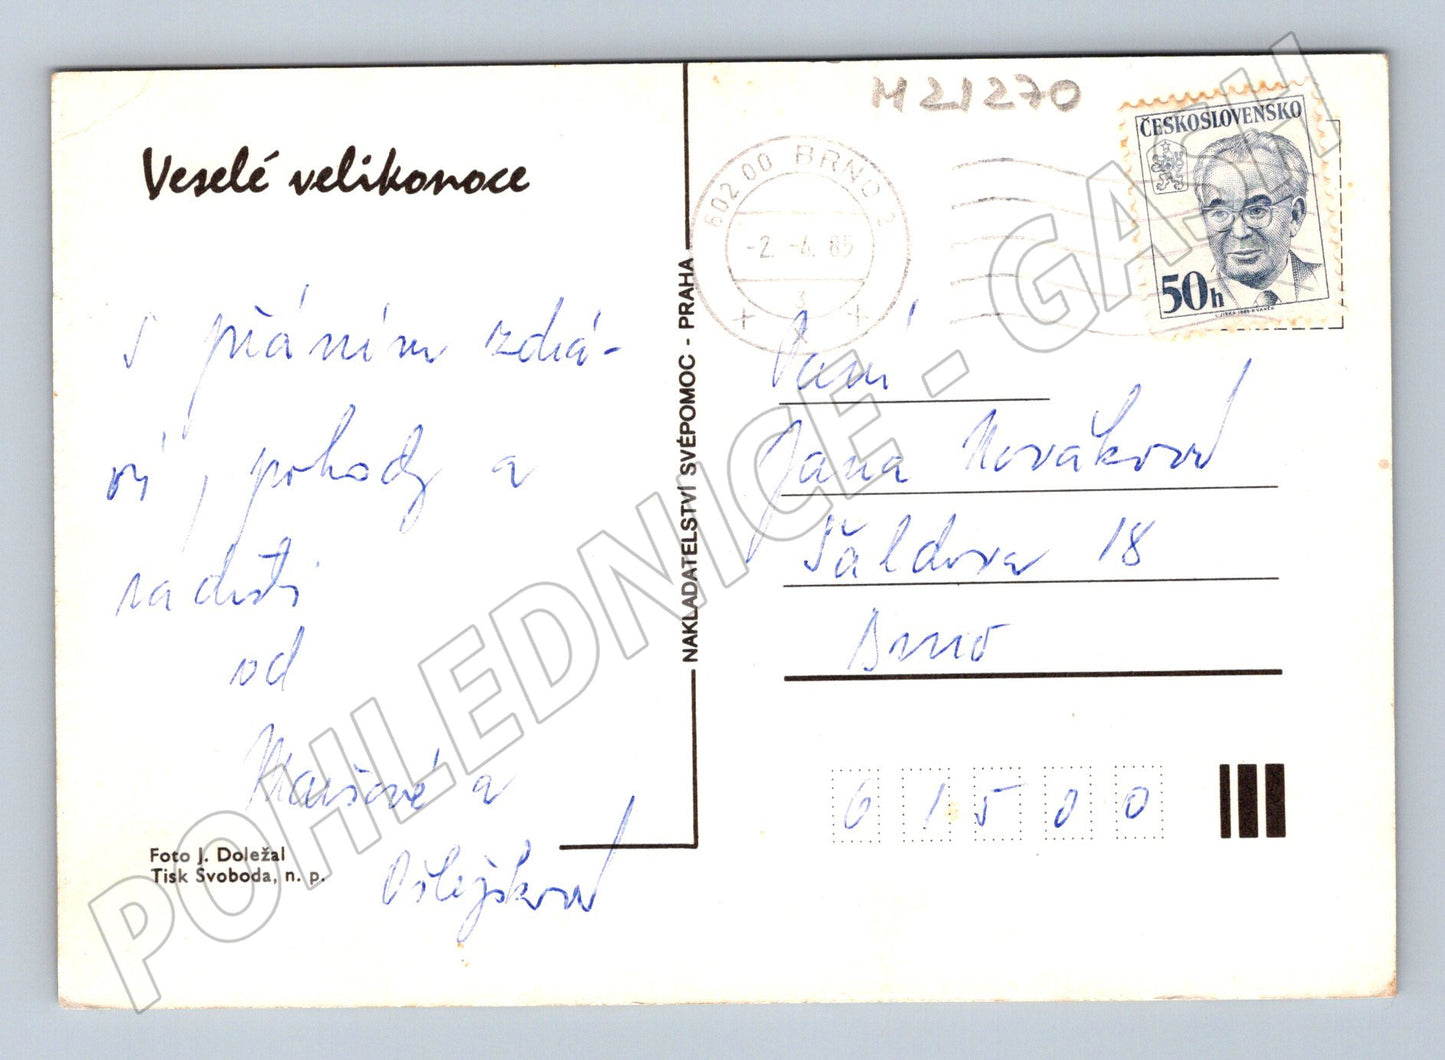 Veselé velikonoce
s přáním zdra-
ví, pohody a
radosti
od
Maršové a
Ošlejškové
Foto J. Doležal
Tisk Svoboda, n. p.
NAKLADATELSTVÍ SVÉPOMOC - PRAHA
M21270
602 00 BRNO 2
-2.-4.85
3
ČESKOSLOVENSKO
50h
Paní
Jana Nováková
Šaldova 18
Brno
61500
POHLEDNICE - GASH